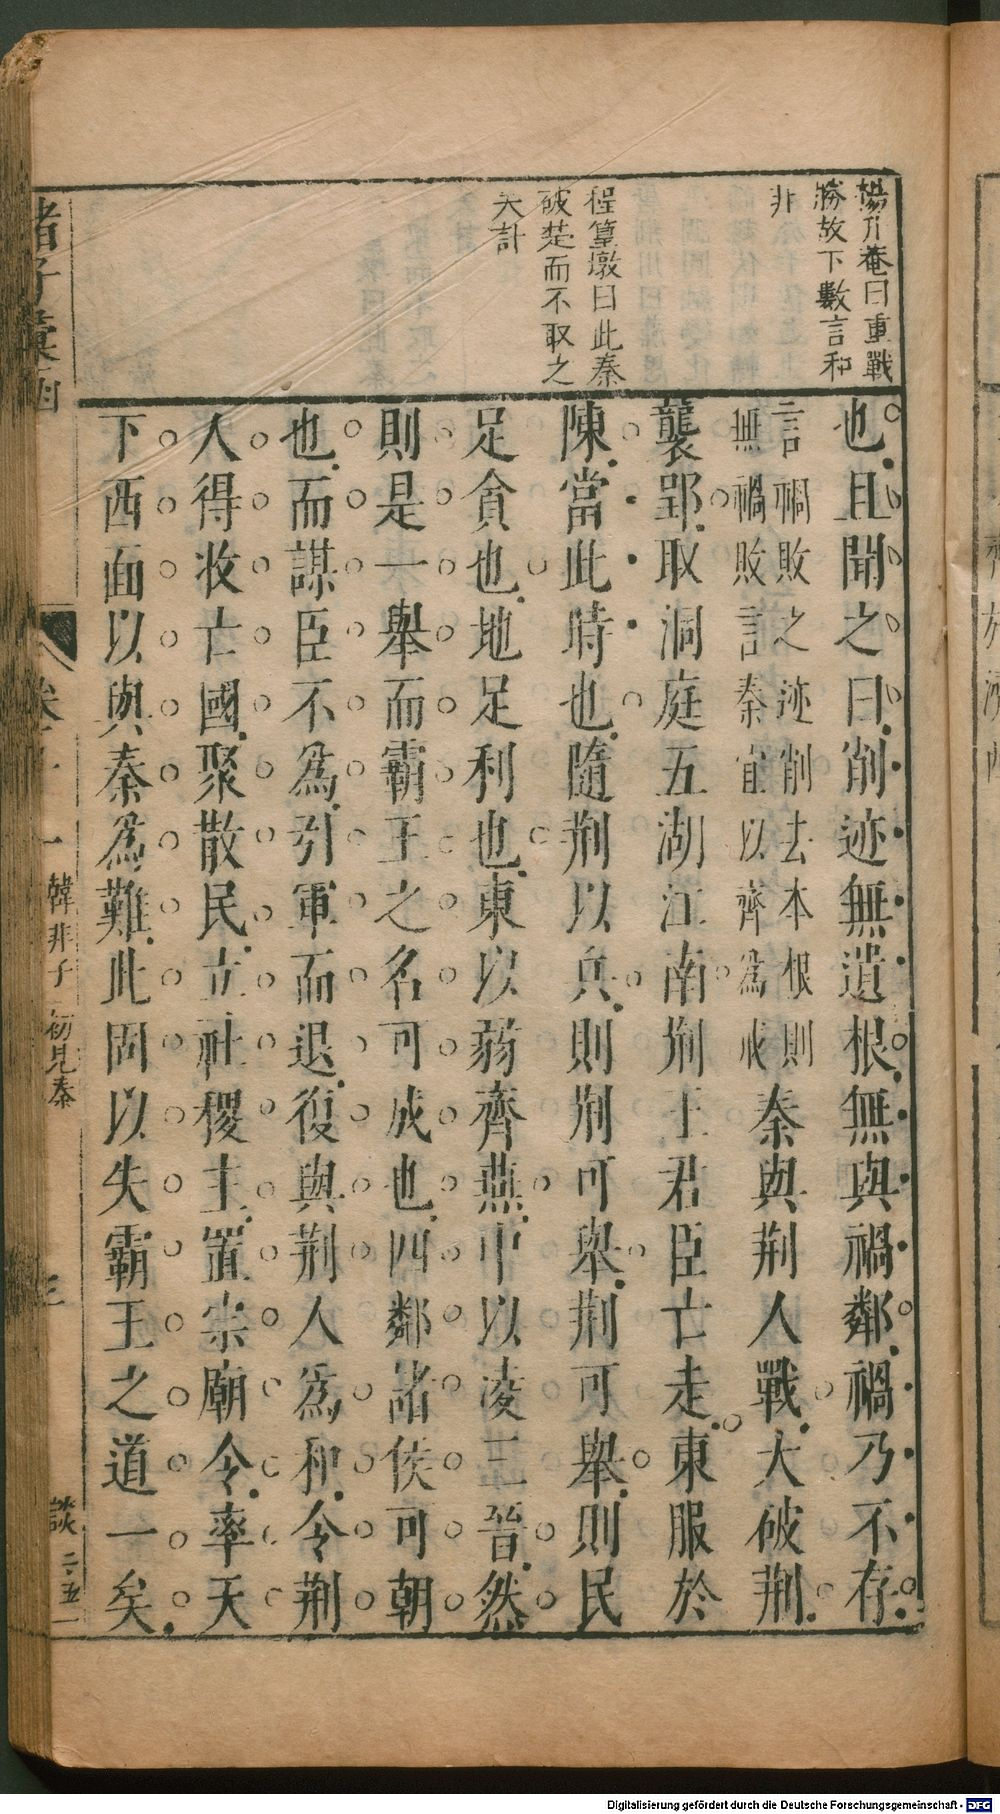 楊升菴曰重戰
勝故下數言和
非
程篁墩曰此秦
破楚而不取之
失計
也且聞之曰削迹無遺根無與禍鄰禍乃不存
言禍敗之迹削去本根則
無禍敗言秦宜以齊爲戒
秦與荆人戰大破荆
襲郢取洞庭五湖江南荆王君臣亡走東服於
陳當此時也隨荆以兵則荆可舉荆可舉則民
足貪也地足利也東以弱齊燕中以凌三晉然
則是一舉而霸王之名可成也四鄰諸侯可朝
也而謀臣不爲引軍而退復與荆人爲和令荆
人得收亡國聚散民立社稷主置宗廟令率天
下西面以與秦爲難此固以失霸王之道一矣
諸子彙函
韓非子 初見秦
三
談 二五一
Digitalisierung gefördert durch die Deutsche Forschungsgemeinschaft - DFG